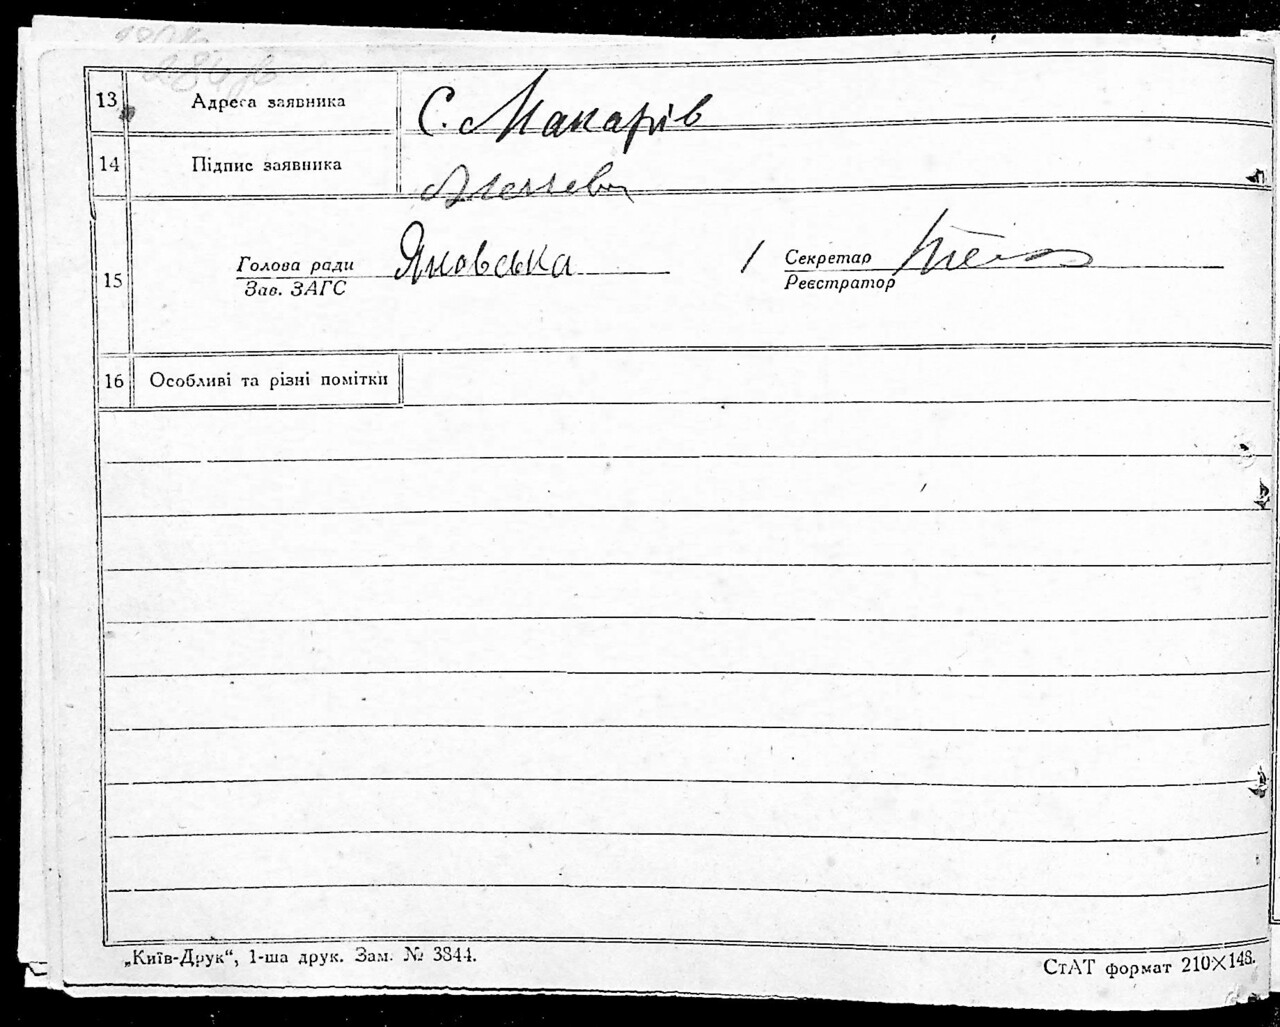 13 Адреса заявника С. Макарів
14 Підпис заявника
15 Голова ради Яновська Секретар
Зав. ЗАГС Реєстратор
16 Особливі та різні помітки
„Київ-Друк“, 1-ша друк. Зам. № 3844. СтАТ формат 210×148.